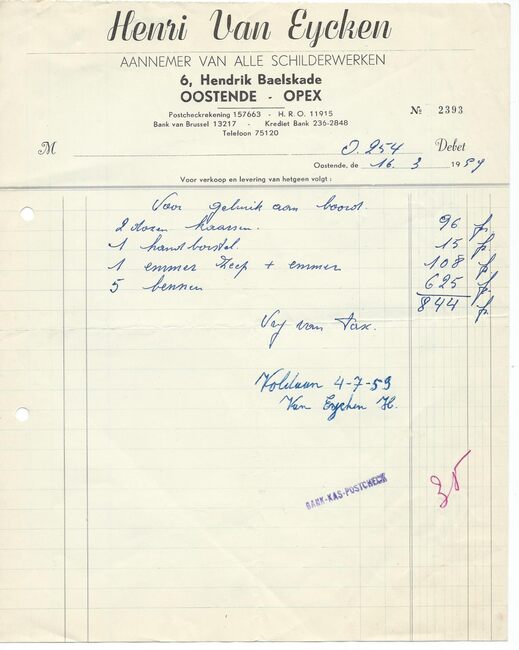 Henri Van Eycken
AANNEMER VAN ALLE SCHILDERWERKEN
6, Hendrik Baelskade
OOSTENDE - OPEX
Postcheckrekening 157663 - H. R. O. 11915
Bank van Brussel 13217 - Krediet Bank 236-2848
Telefoon 75120
№ 2393
M O. 254 Debet
Oostende, de 16. 3 1959
Voor verkoop en levering van hetgeen volgt :
Voor gebruik aan boord.
2 dozen kaarsen. 96 fr
1 handborstel 15 fr
1 emmer zeep + emmer 108 fr
5 bennen 625 fr
844 fr
Vrij van tax.
Voldaan 4-7-59
Van Eycken H.
BANK-KAS-POSTCHECK